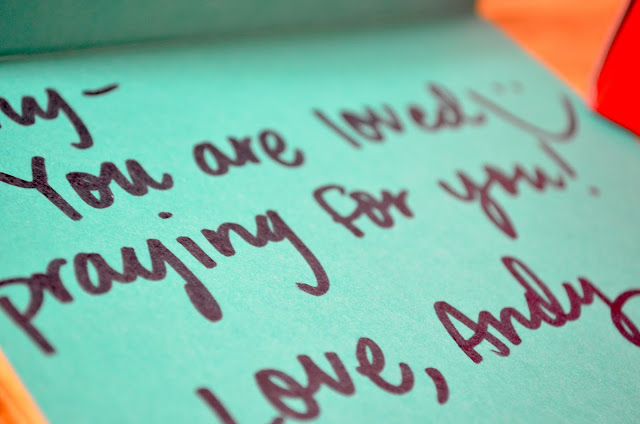 You are loved! :)
praying for you!
Love, Andy